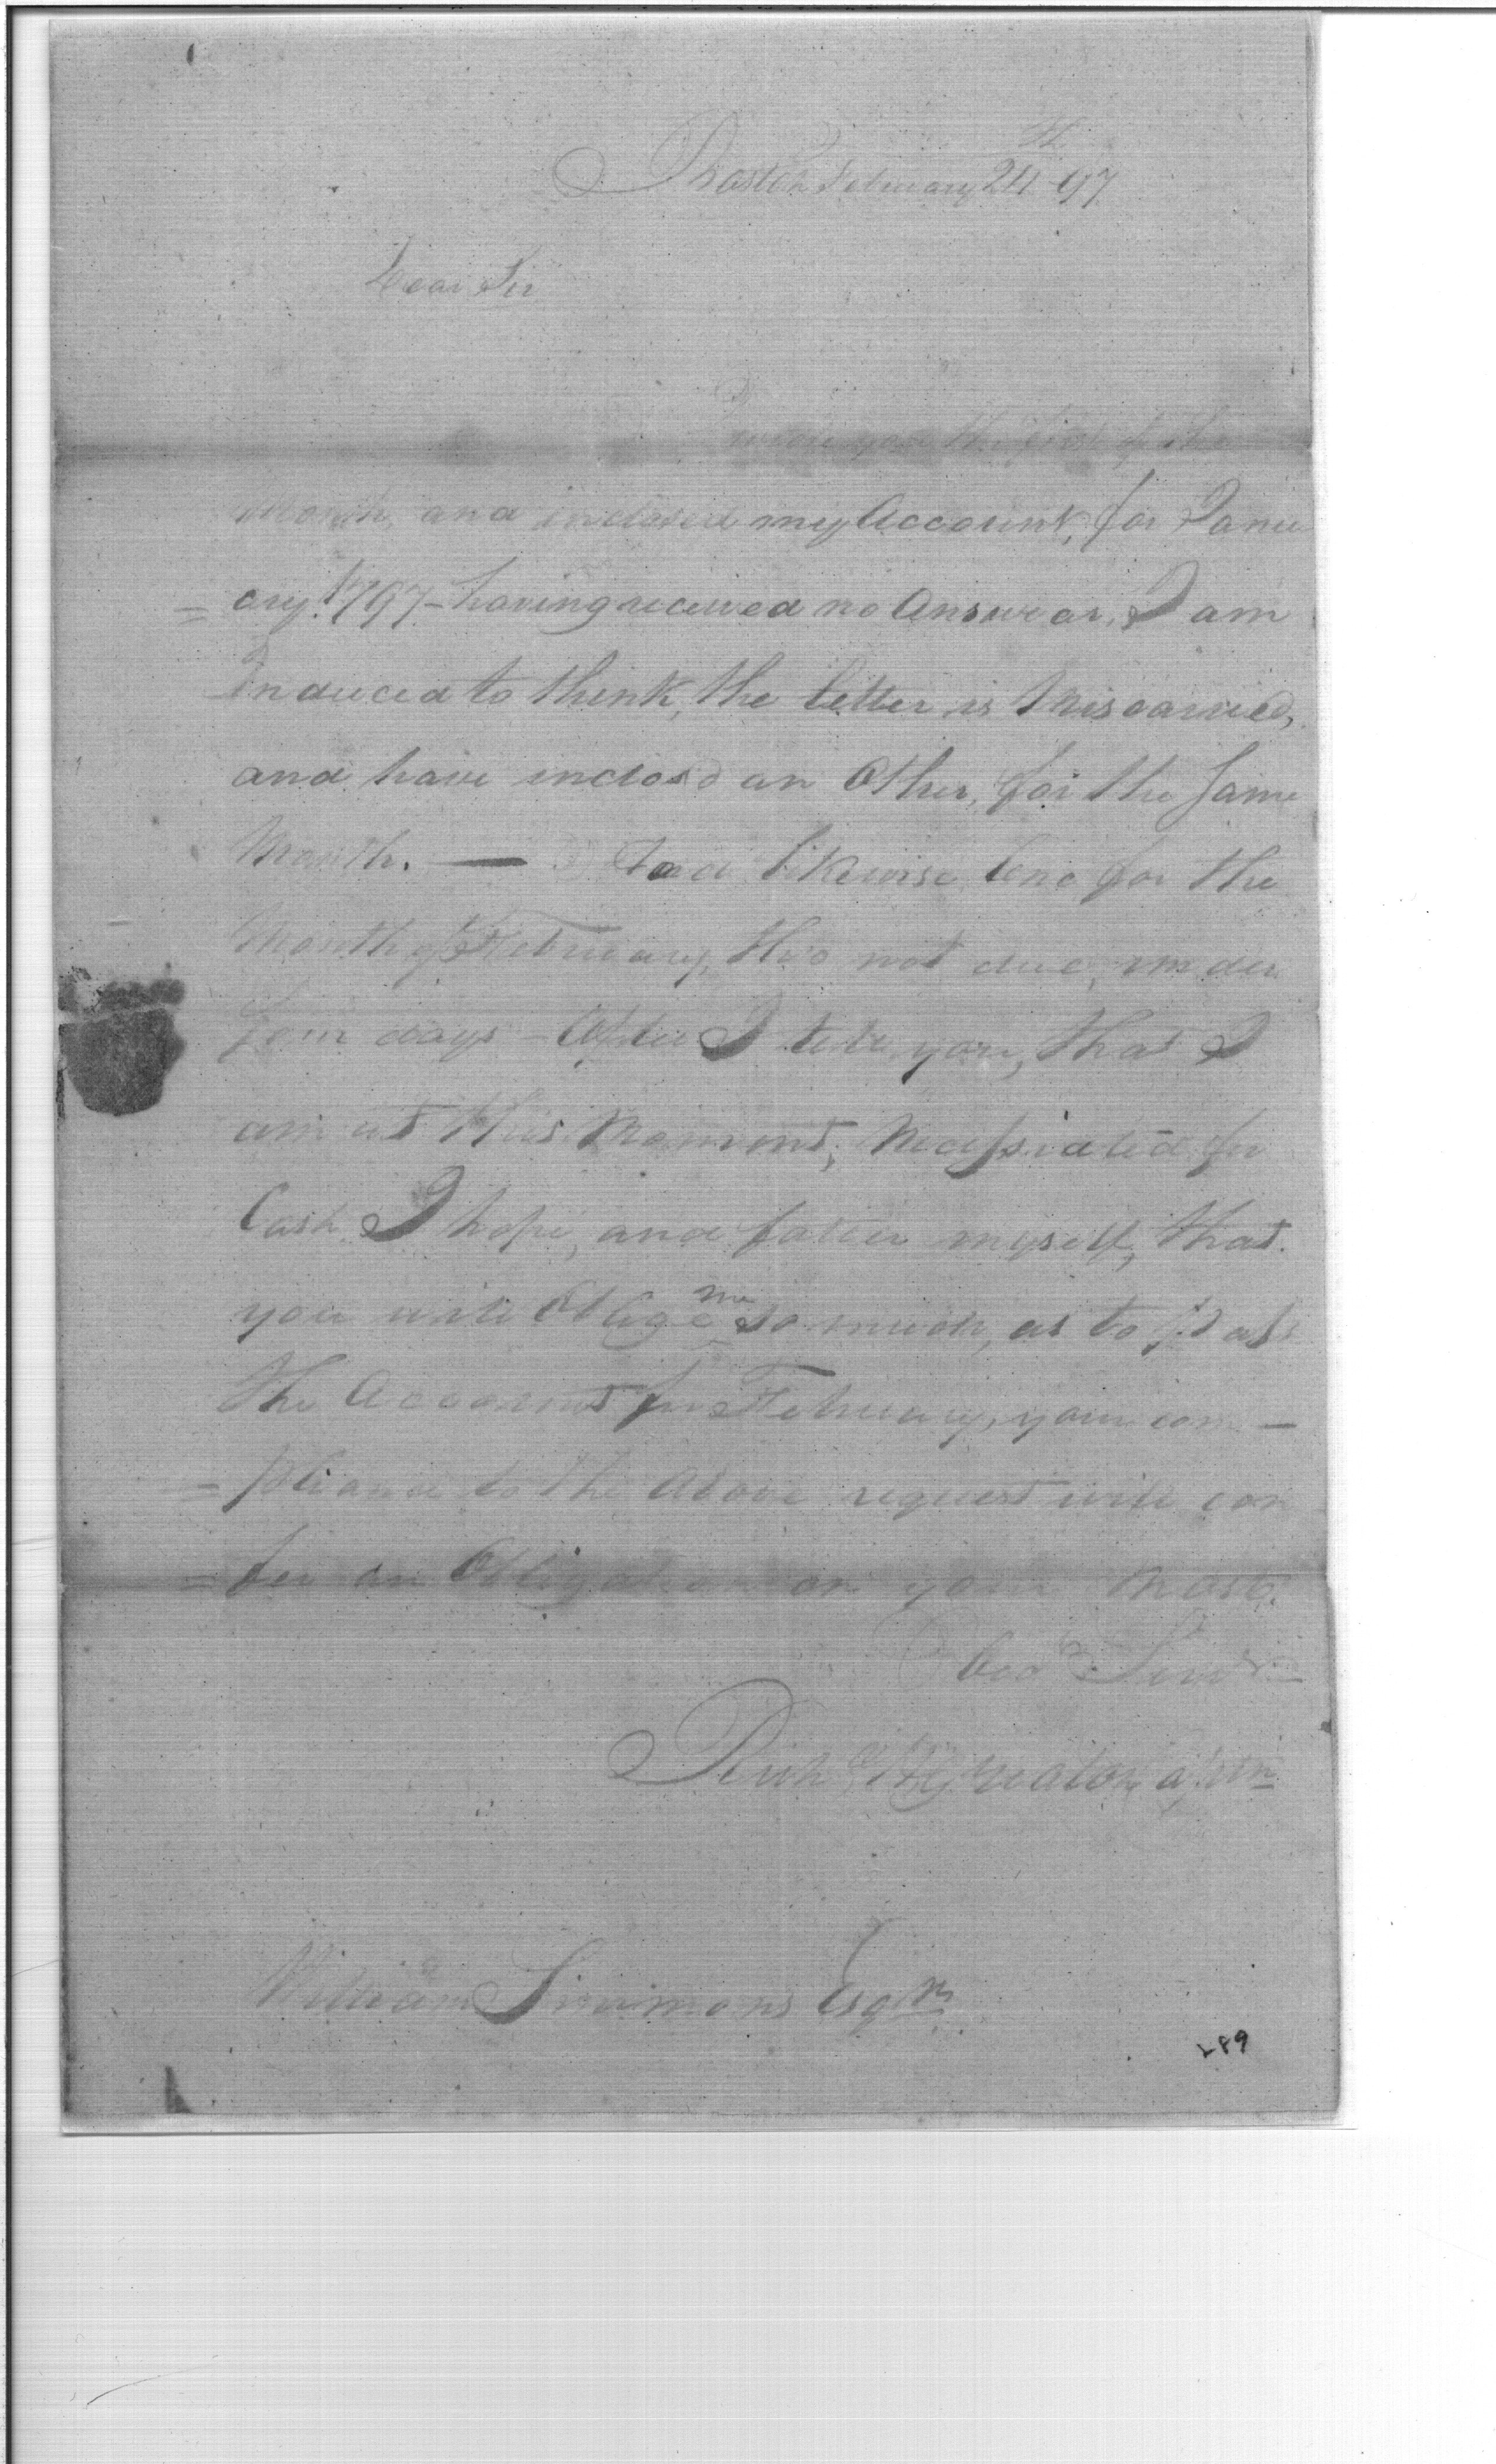 Boston February 24th 97
Dear Sir
I wrote you the first of the
Month, and inclosed my Account, for Janu
= ary 1797 - having received no Answear, I am
induced to think, the letter is Miscarried,
and have inclosd an Other, for the Same
Month. — I add likewise One for the
Month of February, tho not due, under
four days - After I tell you, that I
am at this Moment, Necessiated for
Cash I hope, and flatter myself, that
you will Oblige me so much, as to pass
the Account for February, your com -
= pliance to the above request will con
= fer an Obligation on your Most.
Obedt. Servt.
Rich H Greaton
William Simmons Esqr
LP9